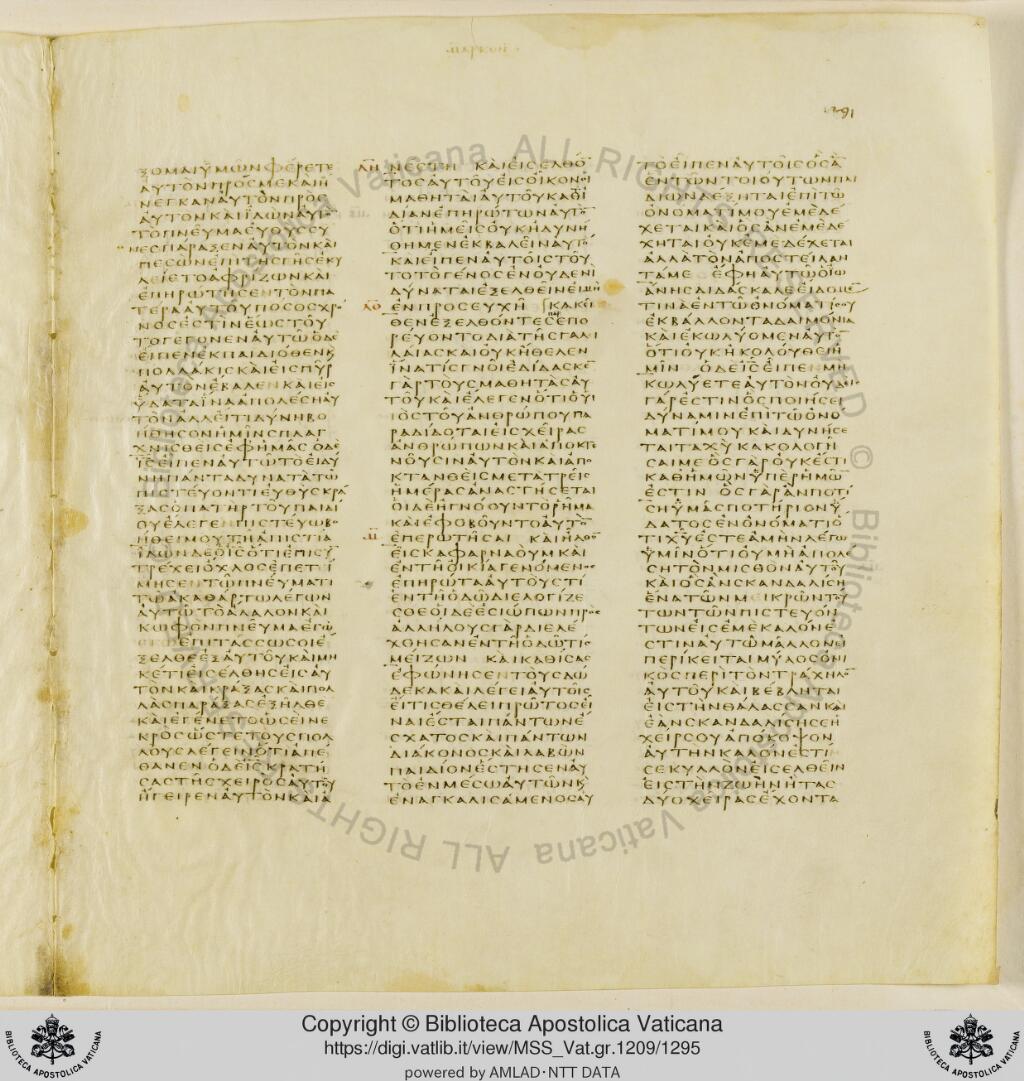 ΞΟΜΑΙΥΜΩΝΦΕΡΕΤΕ
ΑΥΤΟΝΠΡΟΣΜΕΚΑΙΗ
ΝΕΓΚΑΝΑΥΤΟΝΠΡΟΣ
ΑΥΤΟΝΚΑΙΙΔΩΝΑΥΤΟ
ΤΟΠΝΕΥΜΑΕΥΘΥΣΣΥ
ΝΕΣΠΑΡΑΞΕΝΑΥΤΟΝΚΑΙ
ΠΕΣΩΝΕΠΙΤΗΣΓΗΣΕΚΥ
ΛΕΙΕΤΟΑΦΡΙΖΩΝΚΑΙ
ΕΠΗΡΩΤΗΣΕΝΤΟΝΠΑ
ΤΕΡΑΑΥΤΟΥΠΟΣΟΣΧΡΟ
ΝΟΣΕΣΤΙΝΕΩΣΤΟΥ
ΤΟΓΕΓΟΝΕΝΑΥΤΩΟΔΕ
ΕΙΠΕΝΕΚΠΑΙΔΙΟΘΕΝΚ
ΠΟΛΛΑΚΙΣΚΑΙΕΙΣΠΥΡ
ΑΥΤΟΝΕΒΑΛΕΝΚΑΙΕΙΣ
ΥΔΑΤΑΙΝΑΑΠΟΛΕΣΗΑΥ
ΤΟΝΑΛΛΕΙΤΙΔΥΝΗΒΟ
ΗΘΗΣΟΝΗΜΙΝΣΠΛΑΓ
ΧΝΙΣΘΕΙΣΕΦΗΜΑΣΟΔΕ
Ι̅Σ̅ΕΙΠΕΝΑΥΤΩΤΟΕΙΔΥ
ΝΗΠΑΝΤΑΔΥΝΑΤΑΤΩ
ΠΙΣΤΕΥΟΝΤΙΕΥΘΥΣΚΡΑ
ΞΑΣΟΠΑΤΗΡΤΟΥΠΑΙΔΙ
ΟΥΕΛΕΓΕΝΠΙΣΤΕΥΩΒΟ
ΗΘΕΙΜΟΥΤΗΑΠΙΣΤΙΑ
ΙΔΩΝΔΕΟΙ̅Σ̅ΟΤΙΕΠΙΣΥ
ΤΡΕΧΕΙΟΧΛΟΣΕΠΕΤΙ
ΜΗΣΕΝΤΩΠΝΕΥΜΑΤΙ
ΤΩΑΚΑΘΑΡΤΩΛΕΓΩΝ
ΑΥΤΩΤΟΑΛΑΛΟΝΚΑΙ
ΚΩΦΟΝΠΝΕΥΜΑΕΓΩ
ΕΠΙΤΑΣΣΩΣΟΙΕ
ΞΕΛΘΕΕΞΑΥΤΟΥΚΑΙΜΗ
ΚΕΤΙΕΙΣΕΛΘΗΣΕΙΣΑΥ
ΤΟΝΚΑΙΚΡΑΞΑΣΚΑΙΠΟΛ
ΛΑΣΠΑΡΑΞΑΣΕΞΗΛΘΕ
ΚΑΙΕΓΕΝΕΤΟΩΣΕΙΝΕ
ΚΡΟΣΩΣΤΕΤΟΥΣΠΟΛ
ΛΟΥΣΛΕΓΕΙΝΟΤΙΑΠΕ
ΘΑΝΕΝΟΔΕΙ̅Σ̅ΚΡΑΤΗ
ΣΑΣΤΗΣΧΕΙΡΟΣΑΥΤΟΥ
ΗΓΕΙΡΕΝΑΥΤΟΝΚΑΙΑ
ΛΗ ΝΕΣΤΗ ΚΑΙΕΙΣΕΛΘΟ
ΤΟΣΑΥΤΟΥΕΙΣΟΙΚΟΝΟΙ
ΜΑΘΗΤΑΙΑΥΤΟΥΚΑΘΙ
ΔΙΑΝΕΠΗΡΩΤΩΝΑΥΤΟ
ΟΤΙΗΜΕΙΣΟΥΚΗΔΥΝΗ
ΘΗΜΕΝΕΚΒΑΛΕΙΝΑΥΤΟ
ΚΑΙΕΙΠΕΝΑΥΤΟΙΣΤΟΥ
ΤΟΤΟΓΕΝΟΣΕΝΟΥΔΕΝΙ
ΔΥΝΑΤΑΙΕΞΕΛΘΕΙΝΕΙΜΗ
ΛΘ ΕΝΠΡΟΣΕΥΧΗ ΚΑΚΕΙ
ΘΕΝΕΞΕΛΘΟΝΤΕΣΕΠΟ
ΠΑΡ
ΡΕΥΟΝΤΟΔΙΑΤΗΣΓΑΛΙ
ΛΑΙΑΣΚΑΙΟΥΚΗΘΕΛΕΝ
ΙΝΑΤΙΣΓΝΟΙΕΔΙΔΑΣΚΕ
ΓΑΡΤΟΥΣΜΑΘΗΤΑΣΑΥ
ΤΟΥΚΑΙΕΛΕΓΕΝΟΤΙΟΥΙ
ΙΟΣΤΟΥΑΝΘΡΩΠΟΥΠΑ
ΡΑΔΙΔΟΤΑΙΕΙΣΧΕΙΡΑΣ
ΑΝΘΡΩΠΩΝΚΑΙΑΠΟΚΤΕ
ΝΟΥΣΙΝΑΥΤΟΝΚΑΙΑΠΟ
ΚΤΑΝΘΕΙΣΜΕΤΑΤΡΕΙΣ
ΗΜΕΡΑΣΑΝΑΣΤΗΣΕΤΑΙ
ΟΙΔΕΗΓΝΟΟΥΝΤΟΡΗΜΑ
ΚΑΙΕΦΟΒΟΥΝΤΟΑΥΤΟ
Μ ΕΠΕΡΩΤΗΣΑΙ ΚΑΙΗΛΘΟΝ
ΕΙΣΚΑΦΑΡΝΑΟΥΜΚΑΙ
ΕΝΤΗΟΙΚΙΑΓΕΝΟΜΕΝΟΣ
ΕΠΗΡΩΤΑΑΥΤΟΥΣΤΙ
ΕΝΤΗΟΔΩΔΙΕΛΟΓΙΖΕ
ΣΘΕΟΙΔΕΕΣΙΩΠΩΝΠΡΟΣ
ΑΛΛΗΛΟΥΣΓΑΡΔΙΕΛΕ
ΧΘΗΣΑΝΕΝΤΗΟΔΩΤΙΣ
ΜΕΙΖΩΝ ΚΑΙΚΑΘΙΣΑΣ
ΕΦΩΝΗΣΕΝΤΟΥΣΔΩ
ΔΕΚΑΚΑΙΛΕΓΕΙΑΥΤΟΙΣ
ΕΙΤΙΣΘΕΛΕΙΠΡΩΤΟΣΕΙ
ΝΑΙΕΣΤΑΙΠΑΝΤΩΝΕ
ΣΧΑΤΟΣΚΑΙΠΑΝΤΩΝ
ΔΙΑΚΟΝΟΣΚΑΙΛΑΒΩΝ
ΠΑΙΔΙΟΝΕΣΤΗΣΕΝΑΥ
ΤΟΕΝΜΕΣΩΑΥΤΩΝΚ
ΕΝΑΓΚΑΛΙΣΑΜΕΝΟΣΑΥ
ΤΟΕΙΠΕΝΑΥΤΟΙΣΟΣΑ
ΕΝΤΩΝΤΟΙΟΥΤΩΝΠΑΙ
ΔΙΩΝΔΕΞΗΤΑΙΕΠΙΤΩ
ΟΝΟΜΑΤΙΜΟΥΕΜΕΔΕ
ΧΕΤΑΙΚΑΙΟΣΑΝΕΜΕΔΕ
ΧΗΤΑΙΟΥΚΕΜΕΔΕΧΕΤΑΙ
ΑΛΛΑΤΟΝΑΠΟΣΤΕΙΛΑΝ
ΤΑΜΕ ΕΦΗΑΥΤΩΟΙΩ
ΑΝΗΣΔΙΔΑΣΚΑΛΕΕΙΔΟΜΕ
ΤΙΝΑΕΝΤΩΟΝΟΜΑΤΙΣΟΥ
ΕΚΒΑΛΛΟΝΤΑΔΑΙΜΟΝΙΑ
ΚΑΙΕΚΩΛΥΟΜΕΝΑΥΤΟ
ΟΤΙΟΥΚΗΚΟΛΟΥΘΕΙΗ
ΜΙΝ ΟΔΕΙ̅Σ̅ΕΙΠΕΝΜΗ
ΚΩΛΥΕΤΕΑΥΤΟΝΟΥΔΕΙΣ
ΓΑΡΕΣΤΙΝΟΣΠΟΙΗΣΕΙ
ΔΥΝΑΜΙΝΕΠΙΤΩΟΝΟ
ΜΑΤΙΜΟΥΚΑΙΔΥΝΗΣΕ
ΤΑΙΤΑΧΥΚΑΚΟΛΟΓΗ
ΣΑΙΜΕΟΣΓΑΡΟΥΚΕΣΤΙ
ΚΑΘΗΜΩΝΥΠΕΡΗΜΩ
ΕΣΤΙΝ ΟΣΓΑΡΑΝΠΟΤΙ
ΣΗΥΜΑΣΠΟΤΗΡΙΟΝΥ
ΔΑΤΟΣΕΝΟΝΟΜΑΤΙΟ
ΤΙΧΥΕΣΤΕΑΜΗΝΛΕΓΩ
ΥΜΙΝΟΤΙΟΥΜΗΑΠΟΛΕ
ΣΗΤΟΝΜΙΣΘΟΝΑΥΤΟΥ
ΚΑΙΟΣΑΝΣΚΑΝΔΑΛΙΣΗ
ΕΝΑΤΩΝΜΕΙΚΡΩΝΤΟΥ
ΤΩΝΤΩΝΠΙΣΤΕΥΟΝ
ΤΩΝΕΙΣΕΜΕΚΑΛΟΝΕ
ΣΤΙΝΑΥΤΩΜΑΛΛΟΝΕΙ
ΠΕΡΙΚΕΙΤΑΙΜΥΛΟΣΟΝΙ
ΚΟΣΠΕΡΙΤΟΝΤΡΑΧΗΛΟ
ΑΥΤΟΥΚΑΙΒΕΒΛΗΤΑΙ
ΕΙΣΤΗΝΘΑΛΑΣΣΑΝΚΑΙ
ΕΑΝΣΚΑΝΔΑΛΙΣΗΣΕΗ
ΧΕΙΡΣΟΥΑΠΟΚΟΨΟΝ
ΑΥΤΗΝΚΑΛΟΝΕΣΤΙ
ΣΕΚΥΛΛΟΝΕΙΣΕΛΘΕΙΝ
ΕΙΣΤΗΝΖΩΗΝΗΤΑΣ
ΔΥΟΧΕΙΡΑΣΕΧΟΝΤΑ
Copyright © Biblioteca Apostolica Vaticana
https://digi.vatlib.it/view/MSS_Vat.gr.1209/1295
powered by AMLAD·NTT DATA
BIBLIOTECA APOSTOLICA VATICANA
BIBLIOTECA APOSTOLICA VATICANA